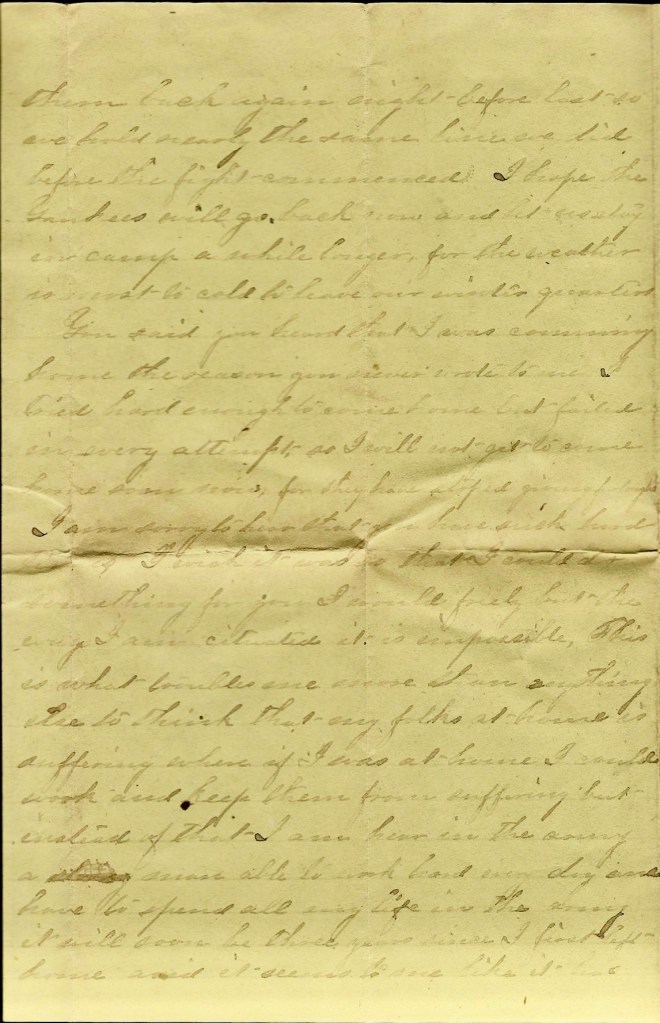 them back again night before last so
we hold nearly the same line we did
before the fight commenced. I hope the
Yankees will go back now and let us stay
in camp a while longer, for the weather
is most to cold to leave our winter quarters
You said you heard that I was comming
home the reason you never wrote to me I
tried hard enough to come home but failed
in every attempt, so I will not get to come
home soon now, for they have stoped giving
I am sorry to hear that you have such hard
I wish it was so that I could do
something for you I would freely but the
way I am cituated it is impossible, This
is what troubles me more than anything
else to think that my folks at home is
suffering when if I was at home I could
work and keep them from suffering but
instead of that I am hear in the army
a man able to work hard every day and
have to spend all my life in the army
it will soon be three years since I first left
home and it seems to me like it has